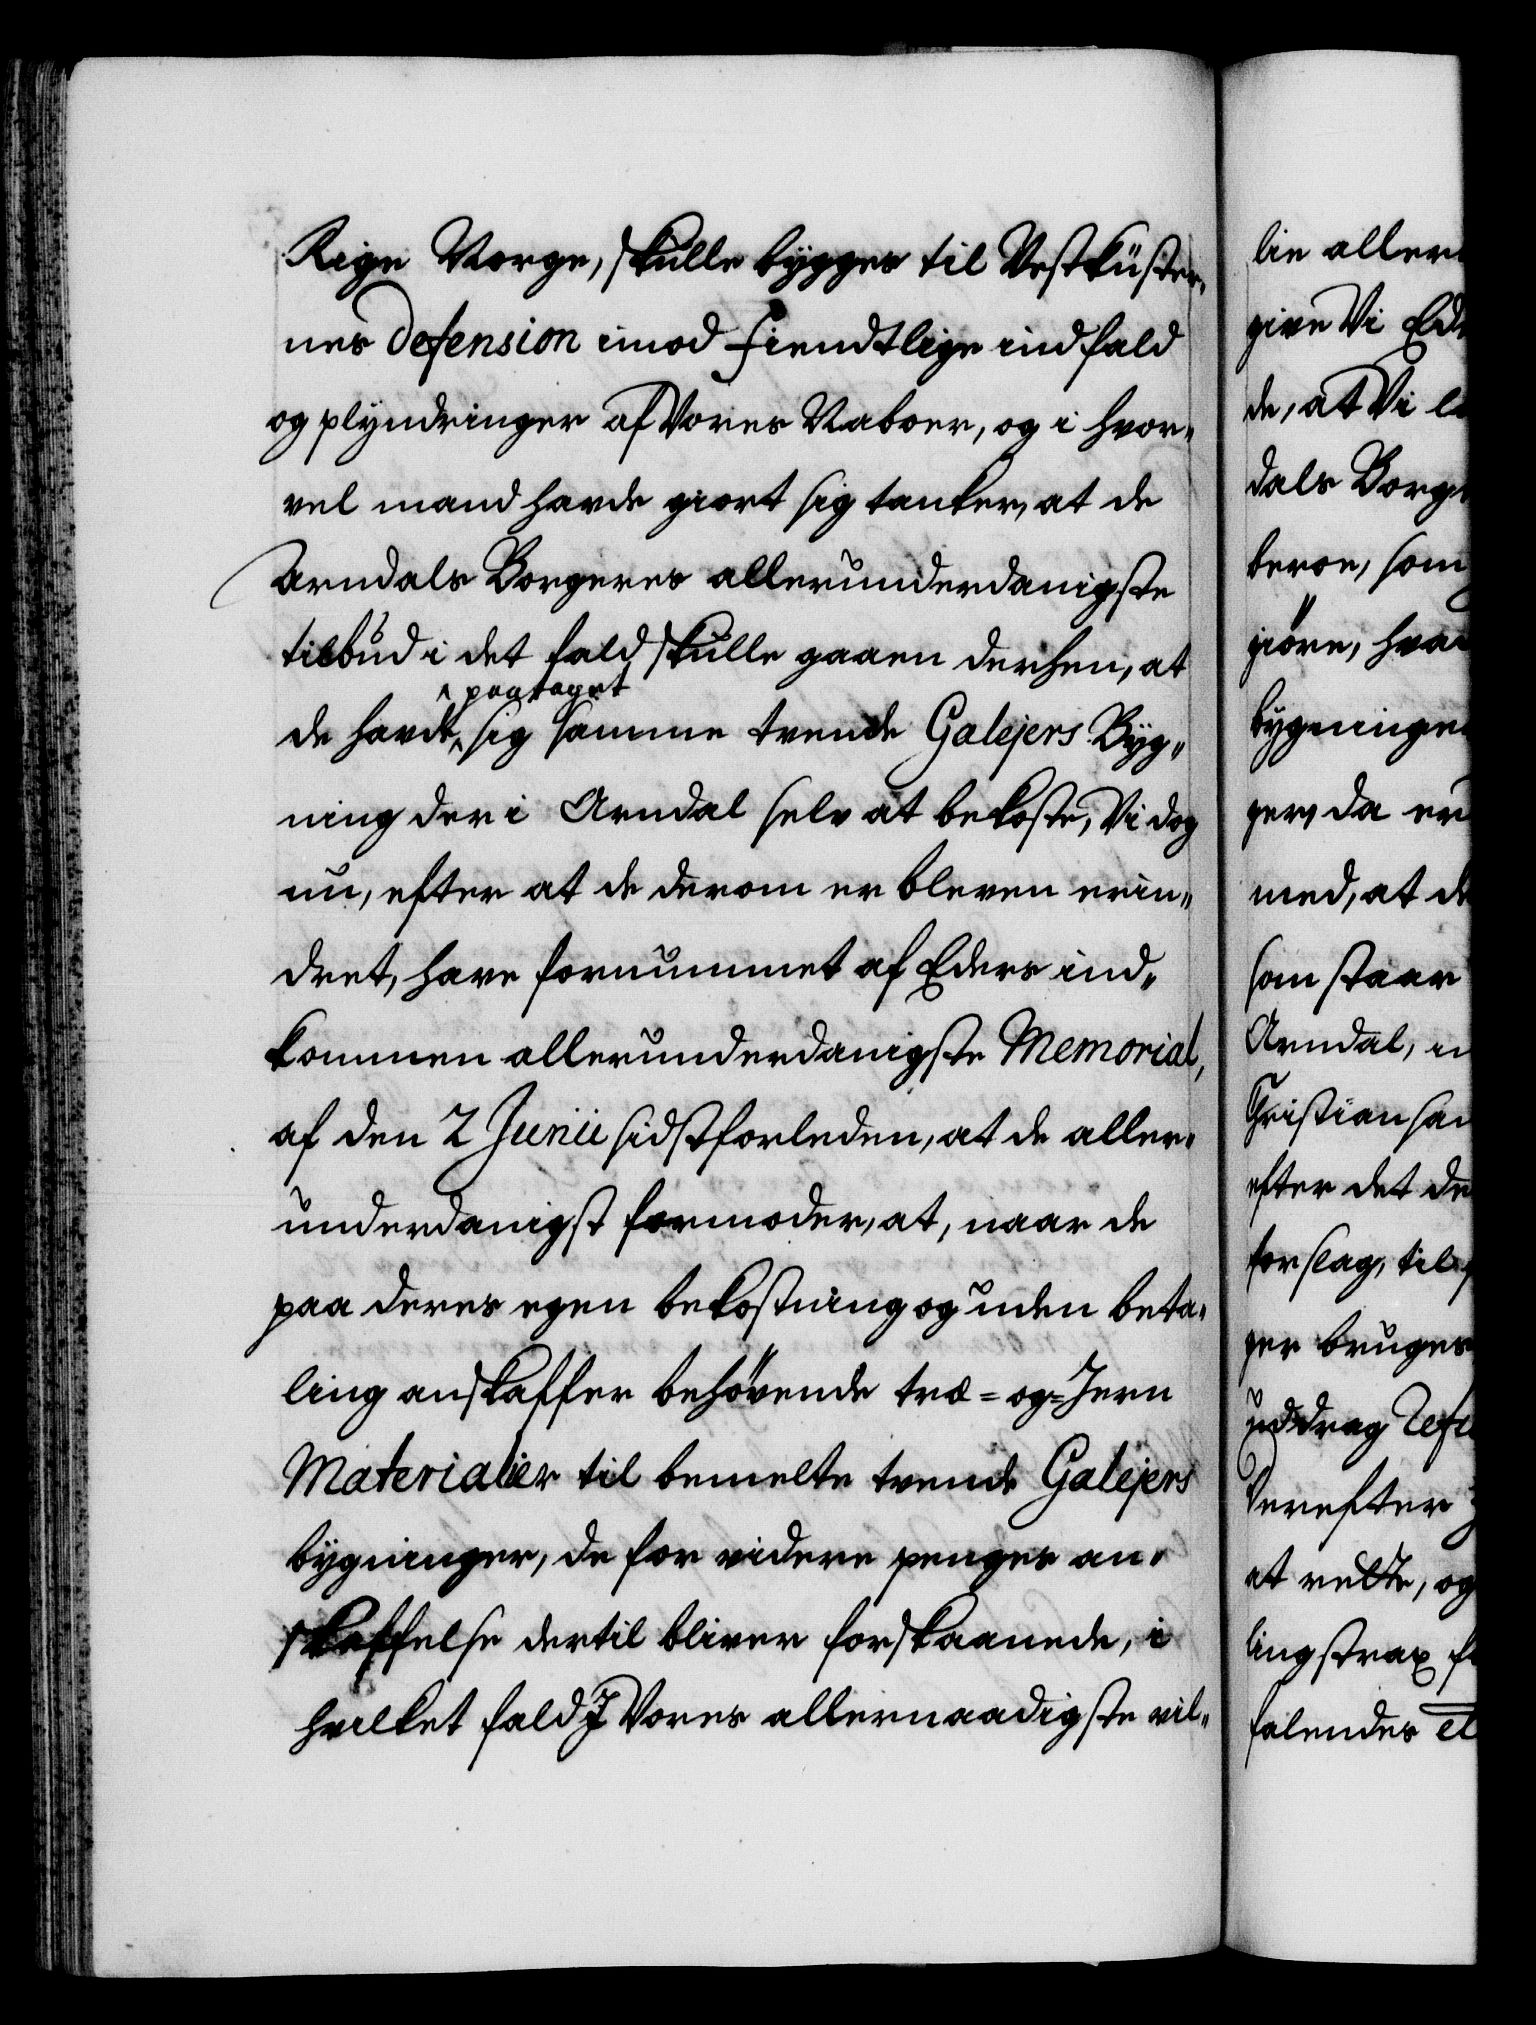 Rige Norge, skulle bÿgges til Vestküster,
nes Defension imod Fiendtlige indfald
og plÿndringer af Vores Naboer, og i hvor,
vel mand havde giort sig tanker, at de
Arndals Borgeres allerunderdanigste
tilbud i det fald skulle gaaen derhen, at
paataget
de havde sig samme trende Galejers Bÿg,,
ning der i Arndal selv at bekoste, Vi dog
nu, efter at de derom er bleven erin,,
dret, have fornummet af Eders ind,
kommen allerunderdanigste Memorial,
af den 2 Junii sidstforleden, at de aller,
underdanigst formoder, at, naar de
paa deres egen bekostning og uden beta,
ling anskaffer behövende træ= og= Jern
Materialier til bemelte trende Galejers
bÿgninger, de for videre penges an,
skaffelse dertil bliver forskaanede, i
hvilket fald I Vores allernaadigste vil,,
lie aller
give Vi Ed
de, at Vi l
dals Borge
beroe, som
giöre, hva
bÿgninge
ger, da er
med, at de
som staar
Arndal, i
Christiansan
efter det de
forslag, til
ger bruges
uddrag
derefter
at rette, og
lingstrax f
falendes